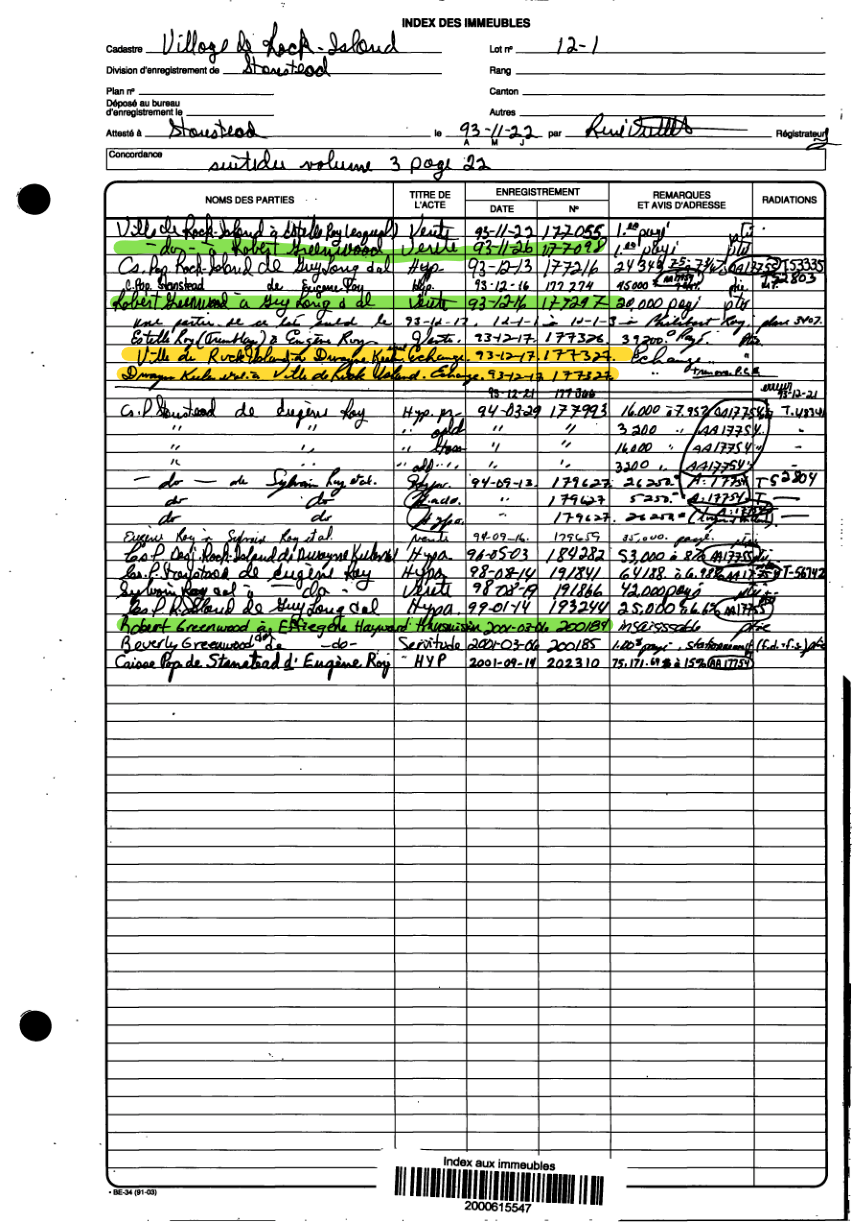 INDEX DES IMMEUBLES
Cadastre Village de Rock-Island Lot nº 12-1
Division d'enregistrement de Stanstead Rang
Plan nº Canton
Déposé au bureau d'enregistrement le Autres
Attesté à Stanstead le 93-11-22 par René Régistrateur
A M J
Concordance suite du volume 3 page 22
NOMS DES PARTIES TITRE DE L'ACTE ENREGISTREMENT DATE Nº REMARQUES ET AVIS D'ADRESSE RADIATIONS
Ville de Rock-Island à Estelle Roy Vente 93-11-22 177055 1.00 payé
-do- à Robert Greenwood Vente 93-11-26 177098 1.00 payé ptie
Cs. Pop Rock-Island de Guy Long et al Hyp. 93-12-13 177216 24348 AA17755 T.53335
C. Pop. Stanstead de Eugène Roy Hyp. 93-12-16 177274 45000 ptie 52803
Robert Greenwood à Guy Long et al Vente 93-12-16 177297 20,000 payé ptie
une partie de ce lot subd le 93-12-17 12-1-1 à 12-1-3 à Philibert Roy plan 3407.
Estelle Roy (Tremblay) à Eugène Roy Vente. 93-12-17 177326 39200. payé. ptie
Ville de Rock Island à Dwayne Keeler Echange. 93-12-17. 177327 Echange
Dwayne Keeler à Ville de Rock Island. Echange. 93-12-17 177327 "
93-12-21 177366 erreur 93-12-21
Cs. P Stanstead de Eugène Roy Hyp. 94-03-29 177993 16.000 à 7.95% AA17754 T.48341
" " " " " 3200 " AA17754 -
" " " " " 16.000 " AA17754 -
" " " add " " 3200 " AA17754 -
- do - de Sylvain Roy et al. Hypo. 94-09-13. 179627 26250. A: 17754 T52804
do do 179627 5250. A:17754 T -
do do Hypo. " 179627. 26250.
Eugène Roy à Sylvain Roy et al. vente 94-09-16. 179659 35,000. payé. ptie
Cs. P. Desj. Rock-Island de Dwayne Keeler Hypo. 96-05-03 184282 53,000 à 8% AA17755
Cs. P. Stanstead de Eugène Roy Hypo. 98-08-14 191841 64188. à 6.98% AA17754 T-56742
Sylvain Roy et al à - do - Vente 98-08-19 191866 42,000 payé ptie
Cs. P R.Island de Guy Long et al Hypo. 99-01-14 193244 25,000 à 6.6% AA17755
Robert Greenwood à Hayward 2001-03-06 200184 insaisissable ptie
Beverly Greenwood de -do- Servitude 2001-03-06 200185 1.00$ payé, stationnement (f.d. + f.s.) ptie
Caisse Pop de Stanstead d'Eugène Roy HYP 2001-09-14 202310 75,171.69$ à 15% AA17754
Index aux immeubles
• BE-34 (91-03)
2000615547